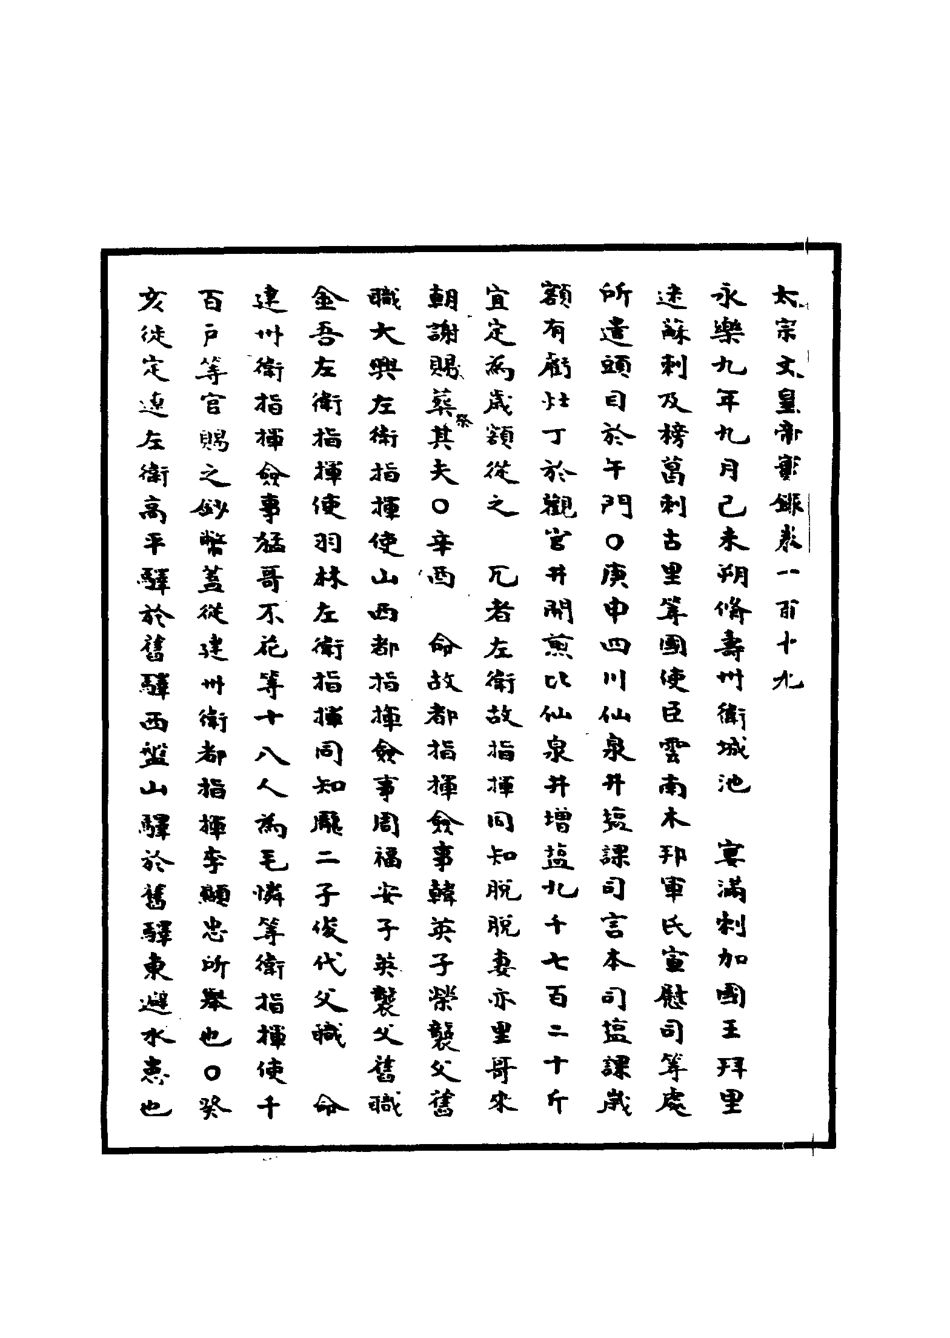 太宗文皇帝實錄卷一百十九
永樂九年九月己未朔脩壽州衛城池　宴滿剌加國王拜里
迷蘇剌及榜葛剌古里等國使臣雲南木邦軍民宣慰司等處
所遣頭目於午門○庚申四川仙泉井塩課司言本司塩課歲
額有虧灶丁於觀宮井開煎比仙泉井增塩九千七百二十斤
宜定為歲額從之　兀者左衛故指揮同知脫脫妻亦里哥來
朝謝賜葬祭其夫○辛酉　命故都指揮僉事韓英子榮襲父舊
職大興左衛指揮使山西都指揮僉事周福安子英襲父舊職
金吾左衛指揮使羽林左衛指揮同知龐二子俊代父職　命
建州衛指揮僉事猛哥不花等十八人為毛憐等衛指揮使千
百戶等官賜之鈔幣蓋從建州衛都指揮李顯忠所舉也○癸
亥徙定遼左衛高平驛於舊驛西盤山驛於舊驛東避水患也